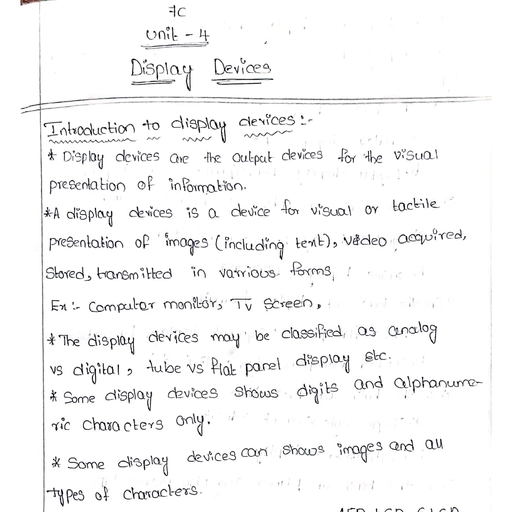 7C
Unit - 4
Display Devices
Introduction to display devices :-
* Display devices are the output devices for the visual
presentation of information.
*A display devices is a device for visual or tactile
presentation of images (including text), video acquired,
Stored, transmitted in various forms.
Ex :- Computer monitor, TV Screen,
* The display devices may be classified as analog
vs digital, tube vs flat panel display etc.
* Some display devices shows digits and alphanume-
ric characters only.
* Some display devices can shows images and all
types of characters.